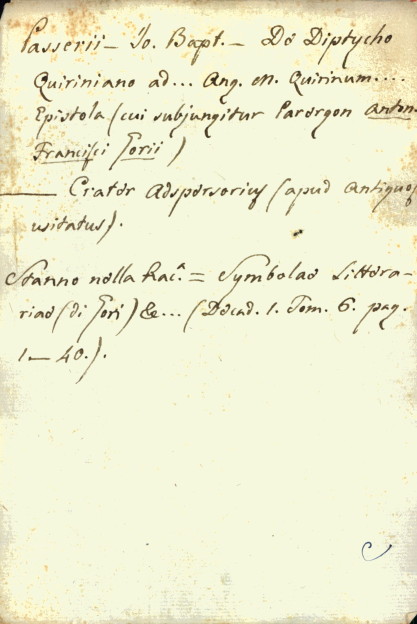 Passerii — Jo. Bapt. — De Diptycho
Quiriniano ad... Ang. M. Quirinum....
Epistola (cui subjungitur Parergon Anton.
Francisci Gorii)
— Crater Adspersorius (apud Antiquos
usitatus).
Stanno nella Rac.ª = Symbolae Littera-
riae (di Gori) &... (Decad. 1. Tom. 6. pag.
1 — 40.).